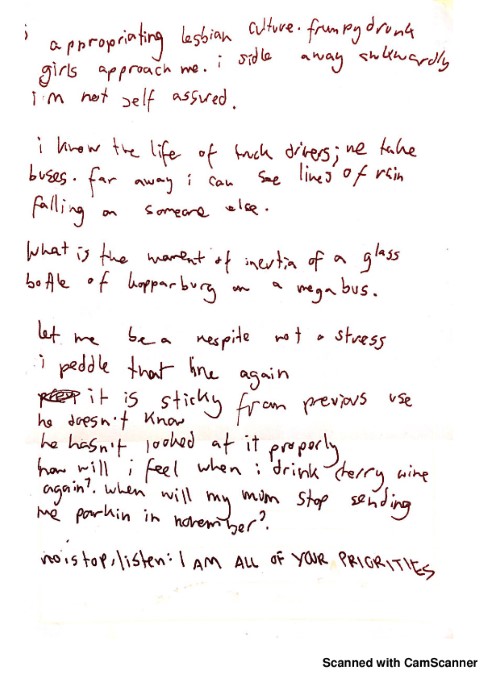 i
appropriating lesbian culture. frumpy drunk
girls approach me. i sidle away awkwardly
i'm not self assured.
i know the life of truck drivers; we take
buses. far away i can see lines of rain
falling on someone else.
What is the moment of inertia of a glass
bottle of hopparburg on a megabus.
let me be a respite not a stress
i peddle that line again
it is sticky from previous use
he doesn't know
he hasn't looked at it properly
how will i feel when i drink cherry wine
again?. when will my mum stop sending
me parkin in november?.
no, stop, listen: I AM ALL OF YOUR PRIORITIES
Scanned with CamScanner